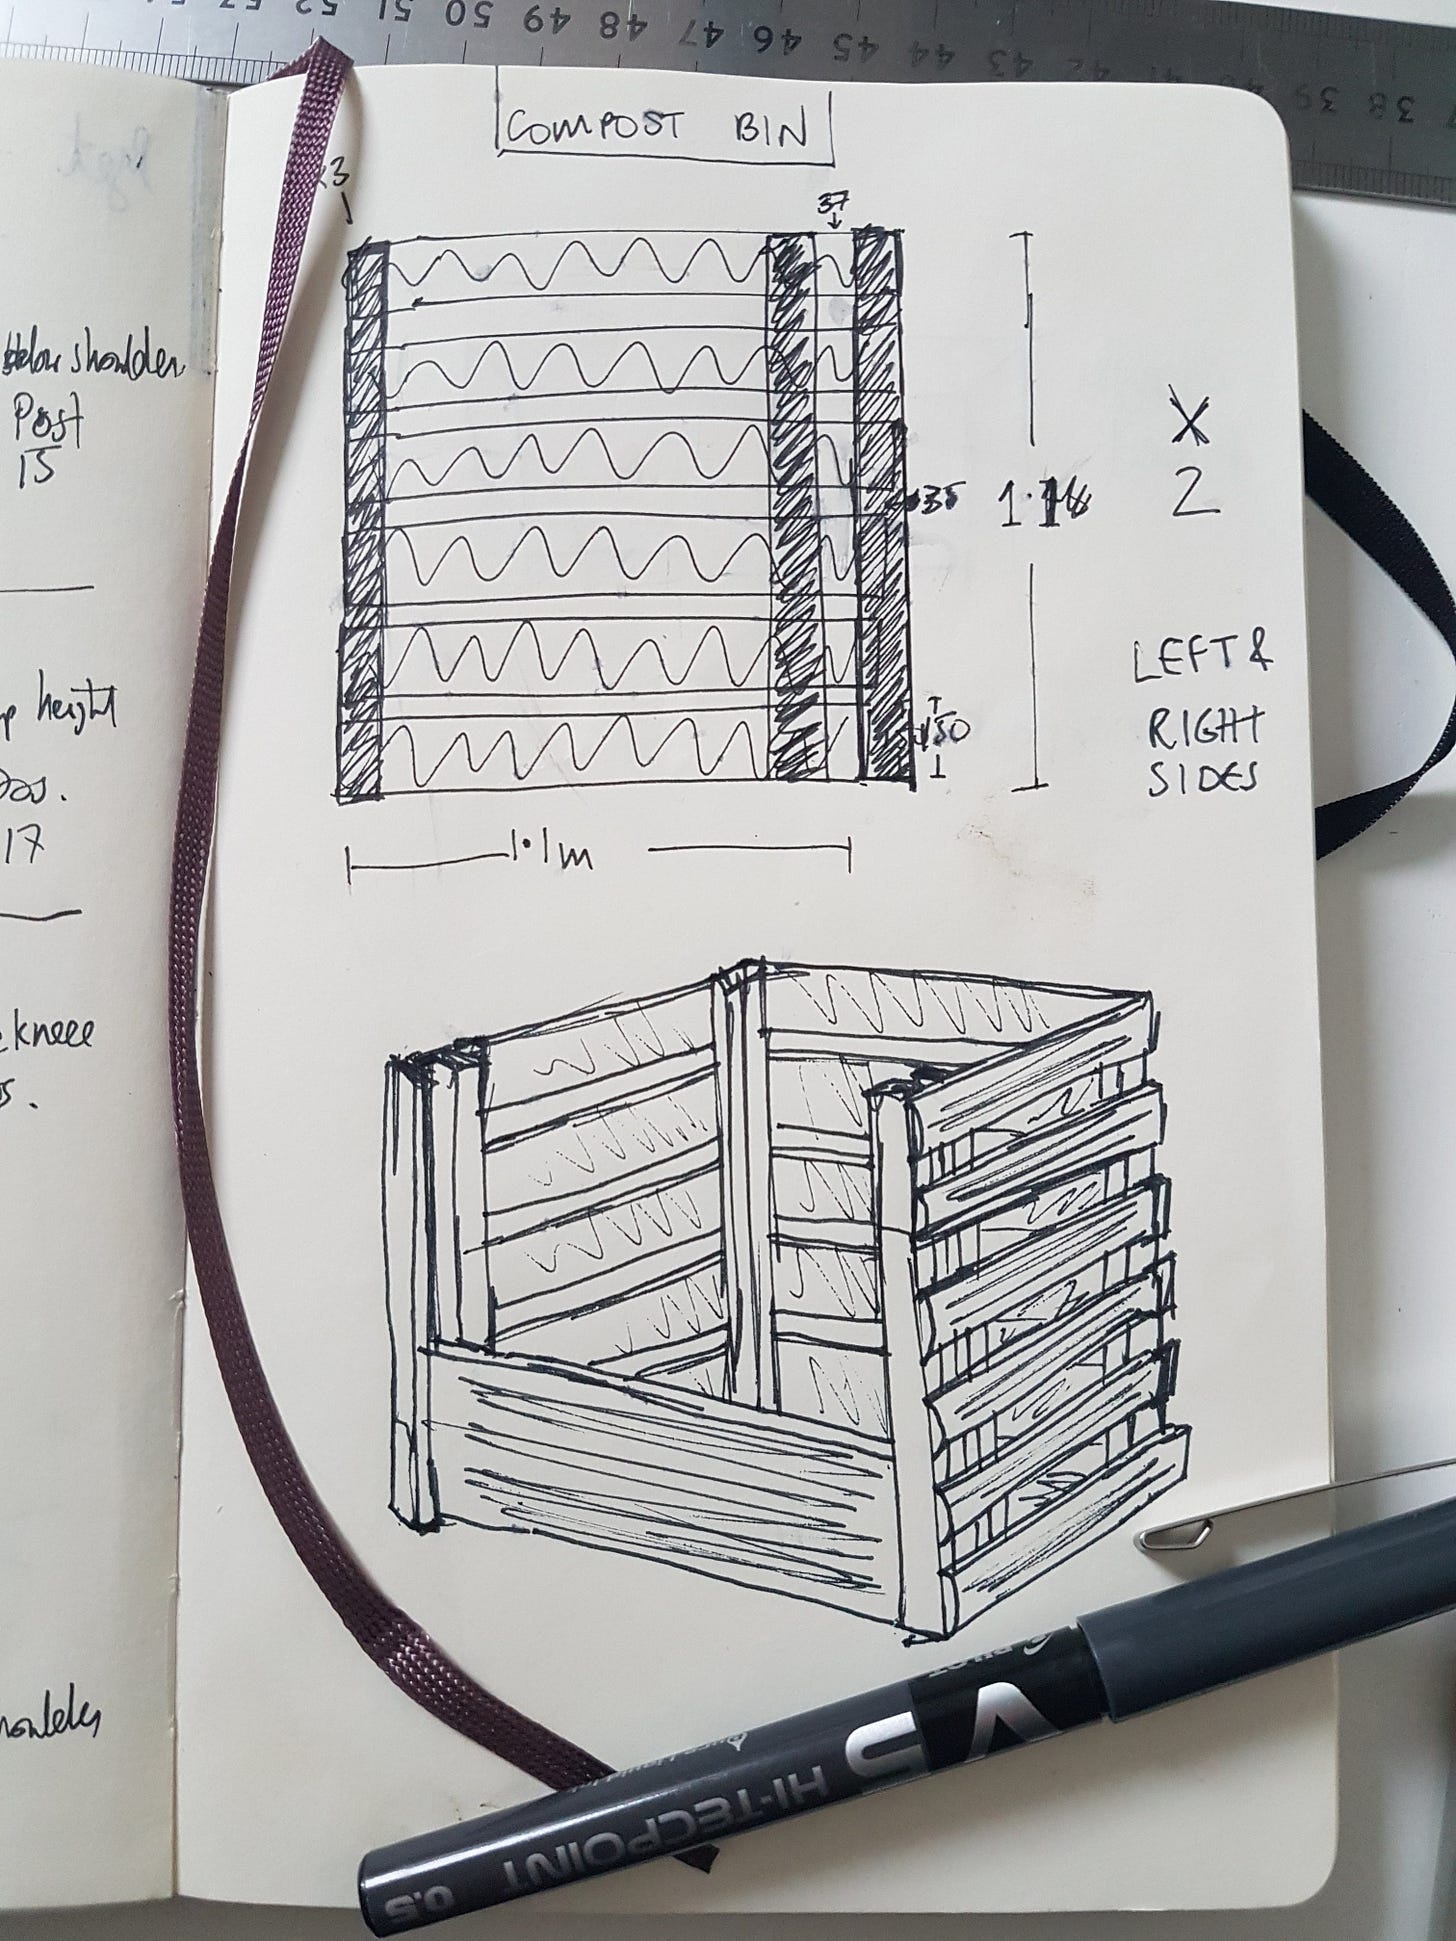 53 52 51 50 49 48 47 46 45 44 43 42 41 40 39 38
COMPOST BIN
x3
37
below shoulder
Post
15
35
X
2
height
150
LEFT &
RIGHT
SIDES
17
1.1m
knee
PILOT
V5
HI-TECPOINT
0.5